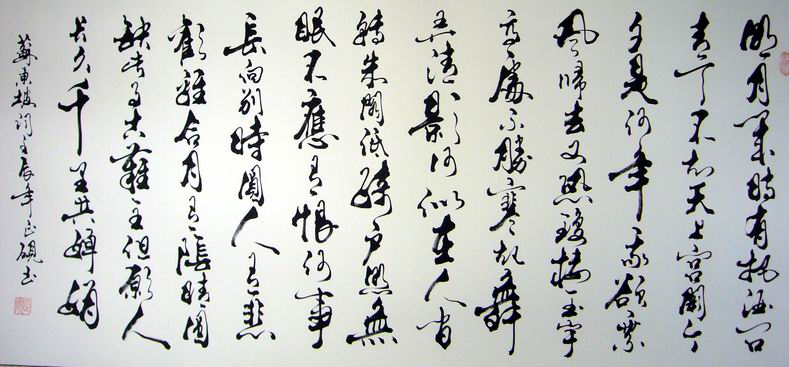 明月幾時有把酒問
青天不知天上宮闕今
夕是何年我欲乘
風歸去又恐瓊樓玉宇
高處不勝寒起舞
弄清影何似在人間
轉朱閣低綺戶照無
眠不應有恨何事
長向別時圓人有悲
歡離合月有陰晴圓
缺此事古難全但願人
長久千里共嬋娟
蘇東坡詞壬辰年正硯書